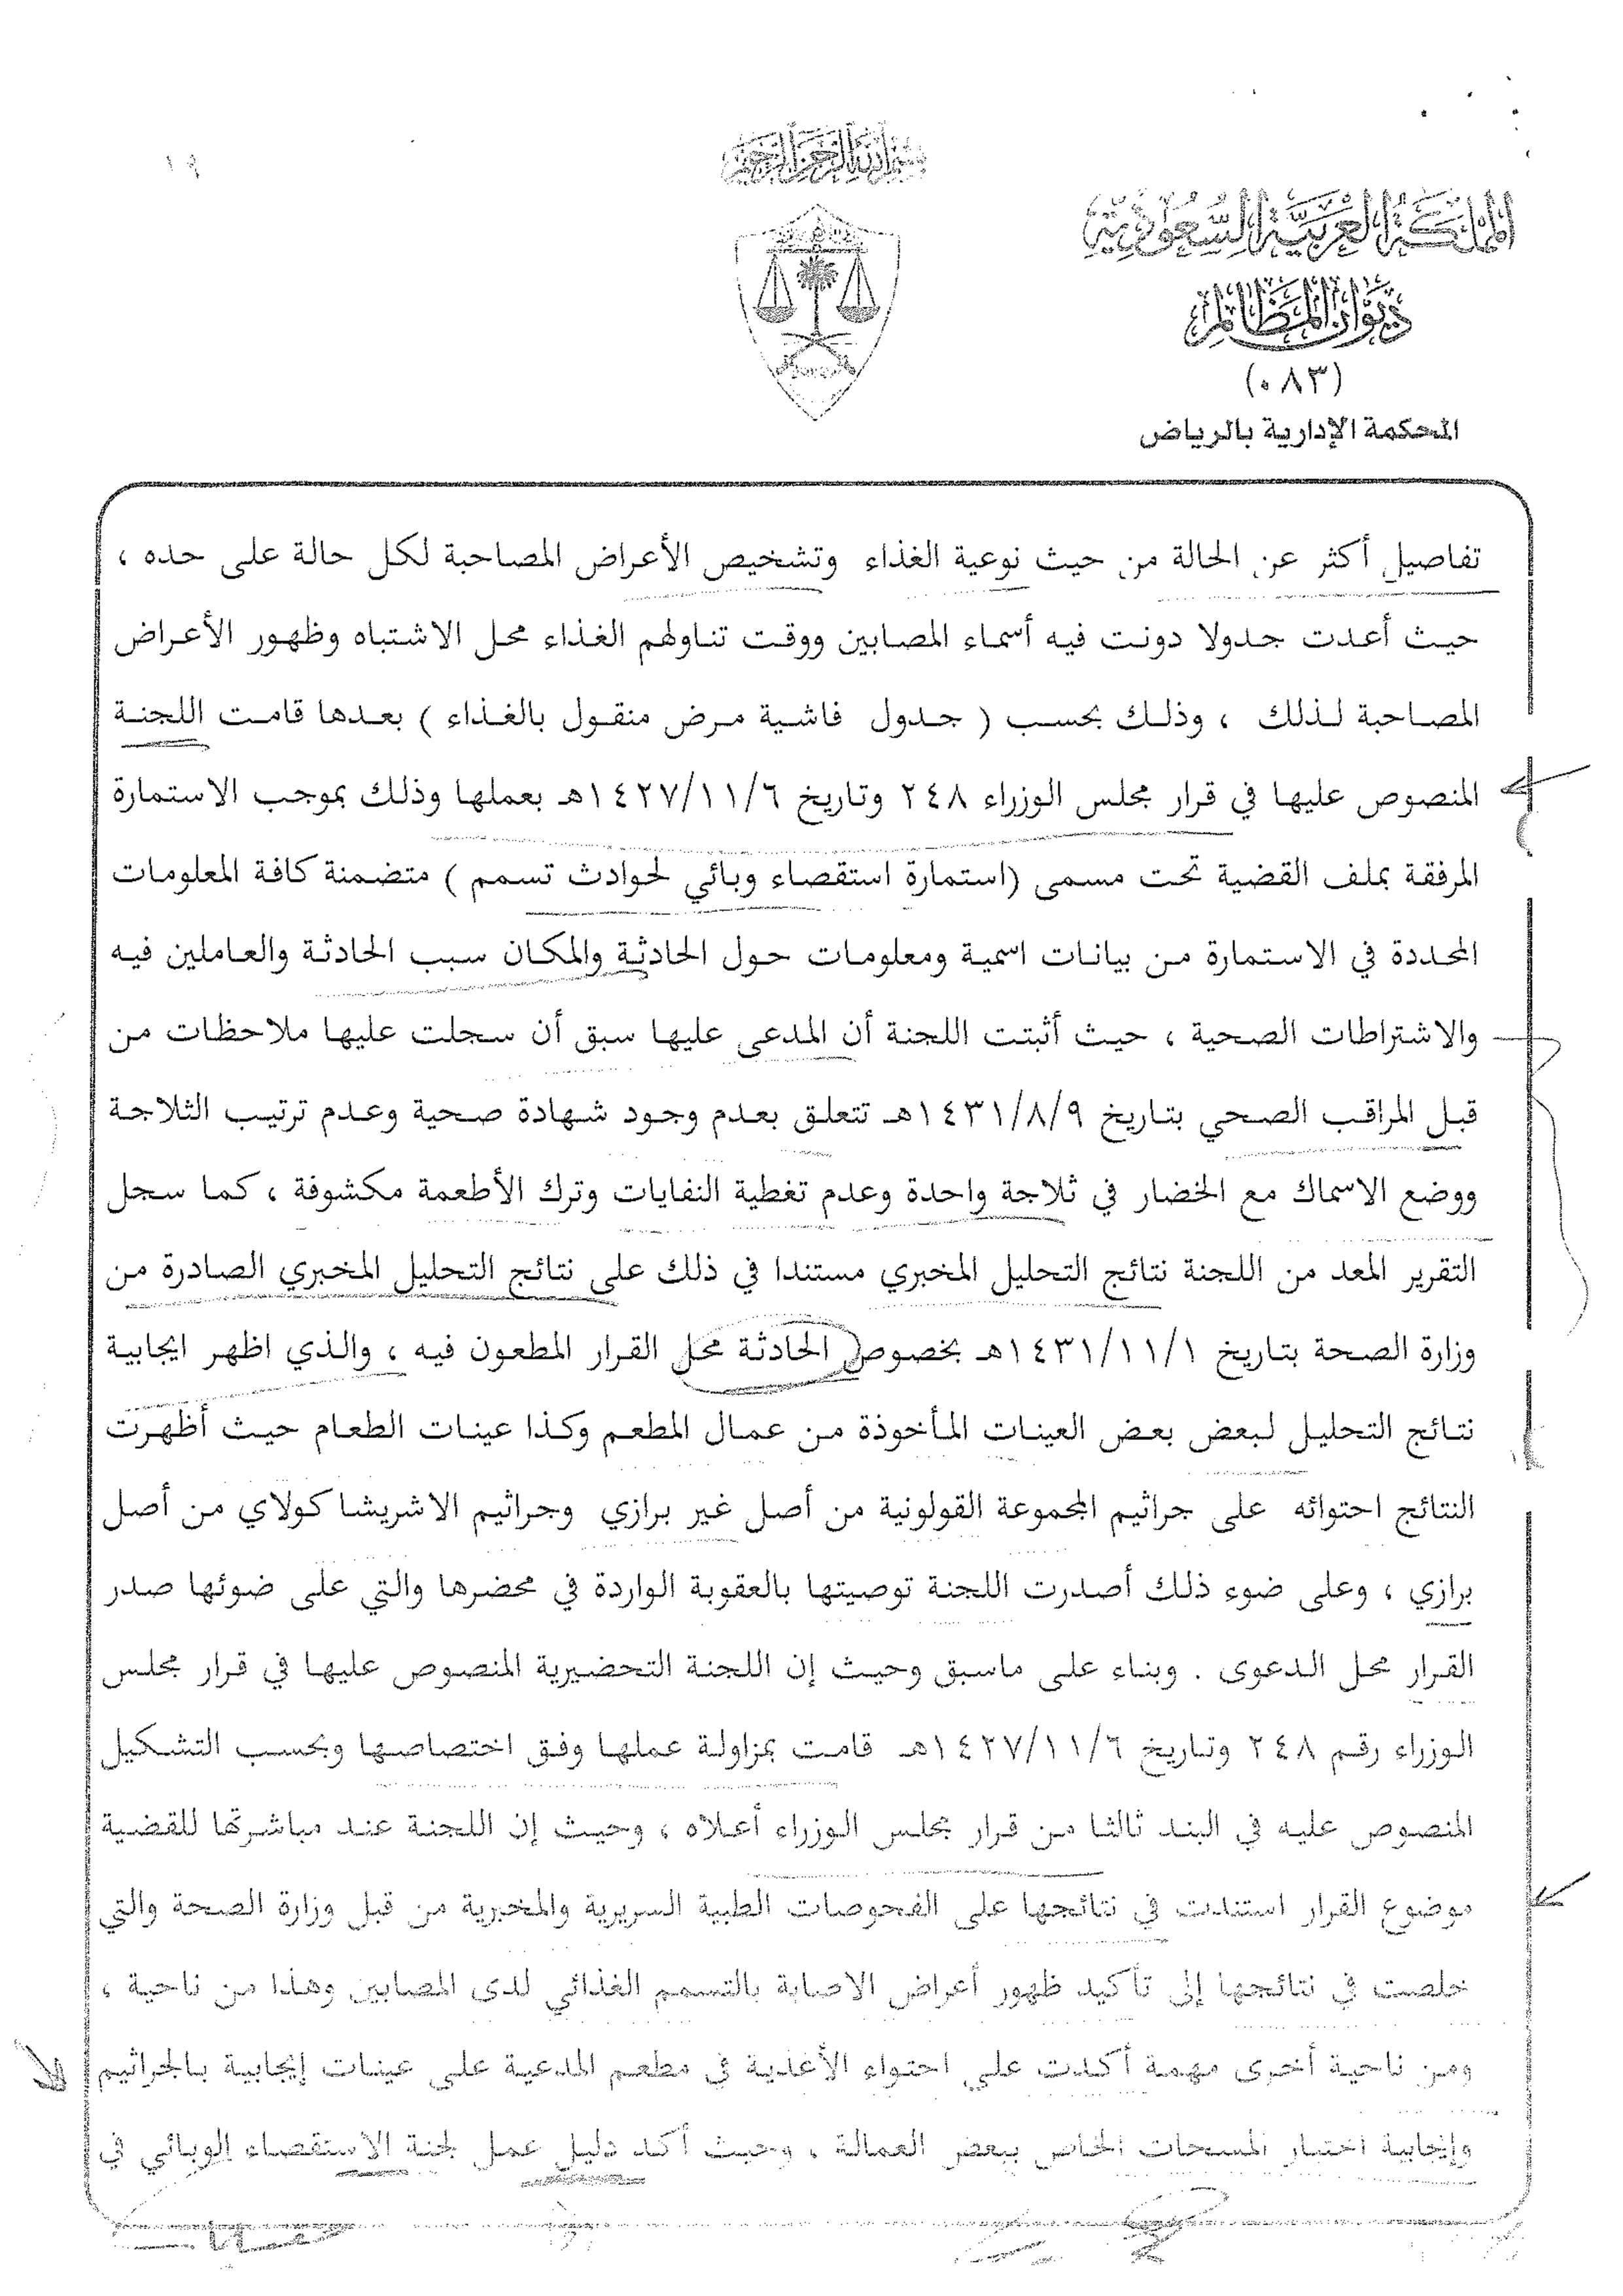 ١٩
بسم الله الرحمن الرحيم
المملكة العربية السعودية
ديوان المظالم
(٠٨٣)
المحكمة الإدارية بالرياض
تفاصيل أكثر عن الحالة من حيث نوعية الغذاء وتشخيص الأعراض المصاحبة لكل حالة على حده ،
حيث أعدت جدولا دونت فيه أسماء المصابين ووقت تناولهم الغذاء محل الاشتباه وظهور الأعراض
المصاحبة لذلك ، وذلك بحسب ( جدول فاشية مرض منقول بالغذاء ) بعدها قامت اللجنة
المنصوص عليها في قرار مجلس الوزراء ٢٤٨ وتاريخ ١٤٢٧/١١/٦هـ بعملها وذلك بموجب الاستمارة
المرفقة بملف القضية تحت مسمى (استمارة استقصاء وبائي لحوادث تسمم ) متضمنة كافة المعلومات
المحددة في الاستمارة من بيانات اسمية ومعلومات حول الحادثة والمكان سبب الحادثة والعاملين فيه
والاشتراطات الصحية ، حيث أثبتت اللجنة أن المدعى عليها سبق أن سجلت عليها ملاحظات من
قبل المراقب الصحي بتاريخ ١٤٣١/٨/٩هـ تتعلق بعدم وجود شهادة صحية وعدم ترتيب الثلاجة
ووضع الاسماك مع الخضار في ثلاجة واحدة وعدم تغطية النفايات وترك الأطعمة مكشوفة ، كما سجل
التقرير المعد من اللجنة نتائج التحليل المخبري مستندا في ذلك على نتائج التحليل المخبري الصادرة من
وزارة الصحة بتاريخ ١٤٣١/١١/١هـ بخصوص الحادثة محل القرار المطعون فيه ، والذي اظهر ايجابية
نتائج التحليل لبعض بعض العينات المأخوذة من عمال المطعم وكذا عينات الطعام حيث أظهرت
النتائج احتوائه على جراثيم المجموعة القولونية من أصل غير برازي وجراثيم الاشريشا كولاي من أصل
برازي ، وعلى ضوء ذلك أصدرت اللجنة توصيتها بالعقوبة الواردة في محضرها والتي على ضوئها صدر
القرار محل الدعوى . وبناء على ماسبق وحيث إن اللجنة التحضيرية المنصوص عليها في قرار مجلس
الوزراء رقم ٢٤٨ وتاريخ ١٤٢٧/١١/٦هـ قامت بمزاولة عملها وفق اختصاصها وبحسب التشكيل
المنصوص عليه في البند ثالثا من قرار مجلس الوزراء أعلاه ، وحيث إن اللجنة عند مباشرتها للقضية
موضوع القرار استندت في نتائجها على الفحوصات الطبية السريرية والمخبرية من قبل وزارة الصحة والتي
خلصت في نتائجها إلى تأكيد ظهور أعراض الاصابة بالتسمم الغذائي لدى المصابين وهذا من ناحية ،
ومن ناحية أخرى مهمة أكدت على احتواء الأغذية في مطعم المدعية على عينات إيجابية بالجراثيم
وإيجابية اختبار المسحات الخاص ببعض العمالة ، وحيث أكد دليل عمل لجنة الاستقصاء الوبائي في